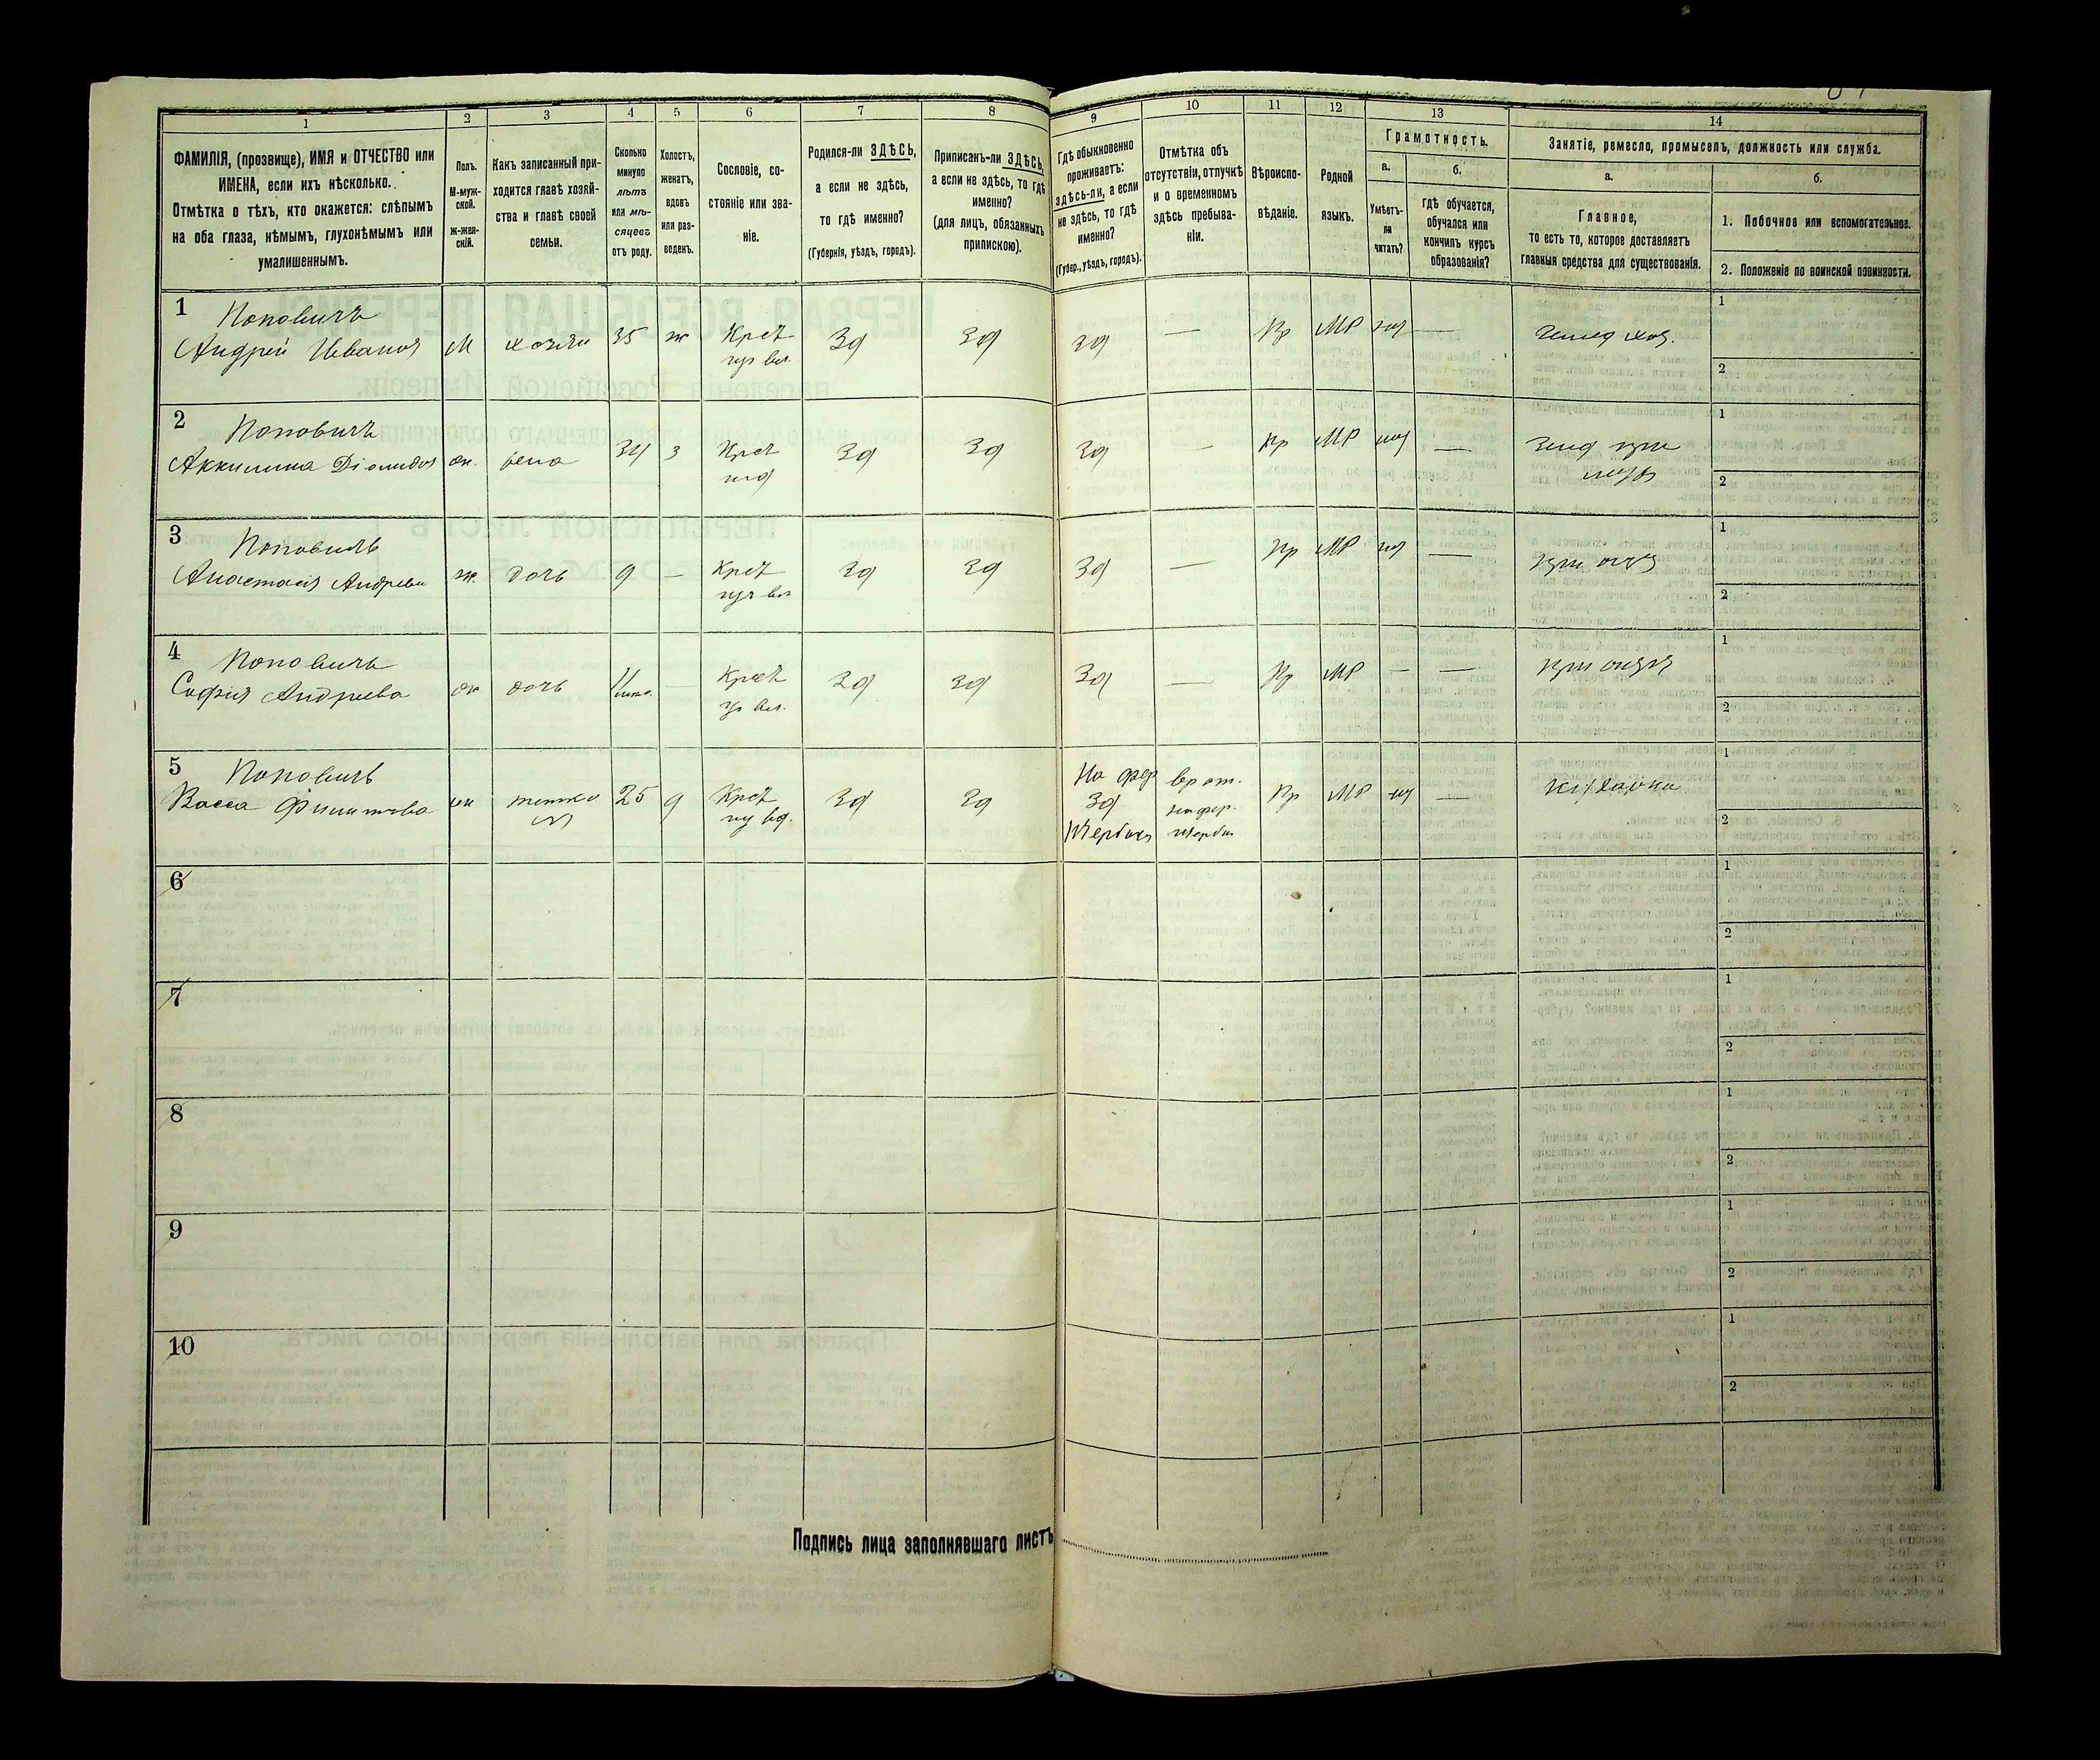 1
2
3
4
5
6
7
8
9
10
11
12
13
14
ФАМИЛІЯ, (прозвище), ИМЯ и ОТЧЕСТВО или
ИМЕНА, если ихъ нѣсколько.
Отмѣтка о тѣхъ, кто окажется: слѣпымъ
на оба глаза, нѣмымъ, глухонѣмымъ или
умалишеннымъ.
Полъ.
М-муж-
ской.
Ж-жен-
скій.
Какъ записанный при-
ходится главѣ хозяй-
ства и главѣ своей
семьи.
Сколько
минуло
лѣтъ
или мѣ-
сяцевъ
отъ роду.
Холостъ,
женатъ,
вдовъ
или раз-
веденъ.
Сословіе, со-
стояніе или зва-
ніе.
Родился-ли ЗДѢСЬ,
а если не здѣсь,
то гдѣ именно?
(Губернія, уѣздъ, городъ).
Приписанъ-ли ЗДѢСЬ,
а если не здѣсь, то гдѣ
именно?
(для лицъ, обязанныхъ
припискою).
Гдѣ обыкновенно
проживаетъ:
здѣсь-ли, а если
не здѣсь, то гдѣ
именно?
(Губер., уѣздъ, городъ).
Отмѣтка объ
отсутствіи, отлучкѣ
и о временномъ
здѣсь пребыва-
ніи.
Вѣроиспо-
вѣданіе.
Родной
языкъ.
Грамотность.
а.
Умѣетъ-
ли
читать?
б.
гдѣ обучается,
обучался или
кончилъ курсъ
образованія?
Занятіе, ремесло, промыселъ, должность или служба.
а.
Главное,
то есть то, которое доставляетъ
главныя средства для существованія.
б.
1. Побочное или вспомогательное.
2. Положеніе по воинской повинности.
1
Поповичъ
Андрей Иванов М хозяин 35 ж Крест зд зд зд — Пр МР —
1
2
2
Поповичъ
Аккилина Діомидов ж. жена 34 з Крест зд зд зд — Пр МР —
1
2
3
Поповичъ
Анастасія Андреева ж. дочь 9 — Крест зд зд зд — Пр МР —
1
2
4
Поповичъ
София Андреева ж дочь — Крест зд зд зд — Пр МР — —
1
2
5
Поповичъ
Васса ж 25 Крест зд зд зд Пр МР —
1
2
6
1
2
7
1
2
8
1
2
9
1
2
10
1
2
Подпись лица заполнявшаго листъ